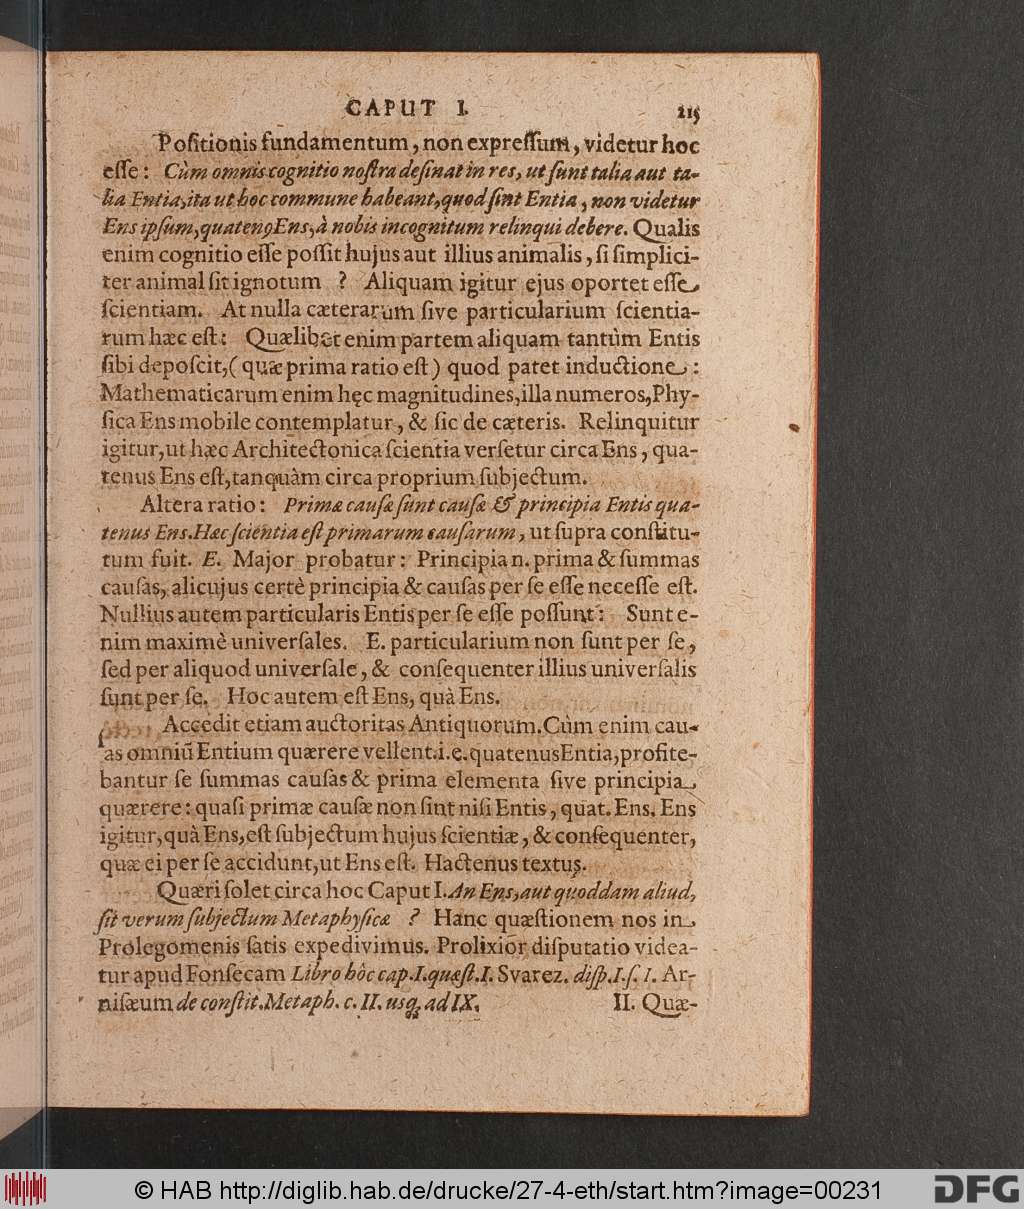 CAPUT I. 215
Poſitionis fundamentum, non expreſſum, videtur hoc
eſſe: Cùm omnis cognitio noſtra deſinat in res, ut ſunt talia aut ta-
lia Entia, ita ut hoc commune habeant, quod ſint Entia, non videtur
Ens ipſum, quatenꝰ Ens, à nobis incognitum relinqui debere. Qualis
enim cognitio eſſe poſſit hujus aut illius animalis, ſi ſimplici-
ter animal ſit ignotum ? Aliquam igitur ejus oportet eſſe
ſcientiam. At nulla cæterarum ſive particularium ſcientia-
rum hæc eſt: Quælibet enim partem aliquam tantùm Entis
ſibi depoſcit, (quæ prima ratio eſt) quod patet inductione:
Mathematicarum enim hęc magnitudines, illa numeros, Phy-
ſica Ens mobile contemplatur, & ſic de cæteris. Relinquitur
igitur, ut hæc Architectonica ſcientia verſetur circa Ens, qua-
tenus Ens eſt, tanquàm circa proprium ſubjectum.
Altera ratio: Primæ cauſæ ſunt cauſæ & principia Entis qua-
tenus Ens. Hæc ſcientia eſt primarum cauſarum, ut ſupra conſtitu-
tum fuit. E. Major probatur: Principia n. prima & ſummas
cauſas, alicujus certè principia & cauſas per ſe eſſe neceſſe eſt.
Nullius autem particularis Entis per ſe eſſe poſſunt: Sunt e-
nim maximè univerſales. E. particularium non ſunt per ſe,
ſed per aliquod univerſale, & conſequenter illius univerſalis
ſunt per ſe. Hoc autem eſt Ens, quà Ens.
Accedit etiam auctoritas Antiquorum. Cùm enim cau-
ſas omniũ Entium quærere vellent. i. e. quatenus Entia, profite-
bantur ſe ſummas cauſas & prima elementa ſive principia
quærere: quaſi primæ cauſæ non ſint niſi Entis, quat. Ens. Ens
igitur, quà Ens, eſt ſubjectum hujus ſcientiæ, & conſequenter,
quæ ei per ſe accidunt, ut Ens eſt. Hactenus textus.
Quæri ſolet circa hoc Caput I. An Ens, aut quoddam aliud,
ſit verum ſubjectum Metaphyſicæ ? Hanc quæſtionem nos in
Prolegomenis ſatis expedivimus. Prolixior diſputatio videa-
tur apud Fonſecam Libro hôc cap. I. quæſt. I. Svarez. diſp. I. ſ. I. Ar-
niſæum de conſtit. Metaph. c. II. usq; ad IX.
II. Quæ-
© HAB http://diglib.hab.de/drucke/27-4-eth/start.htm?image=00231
DFG